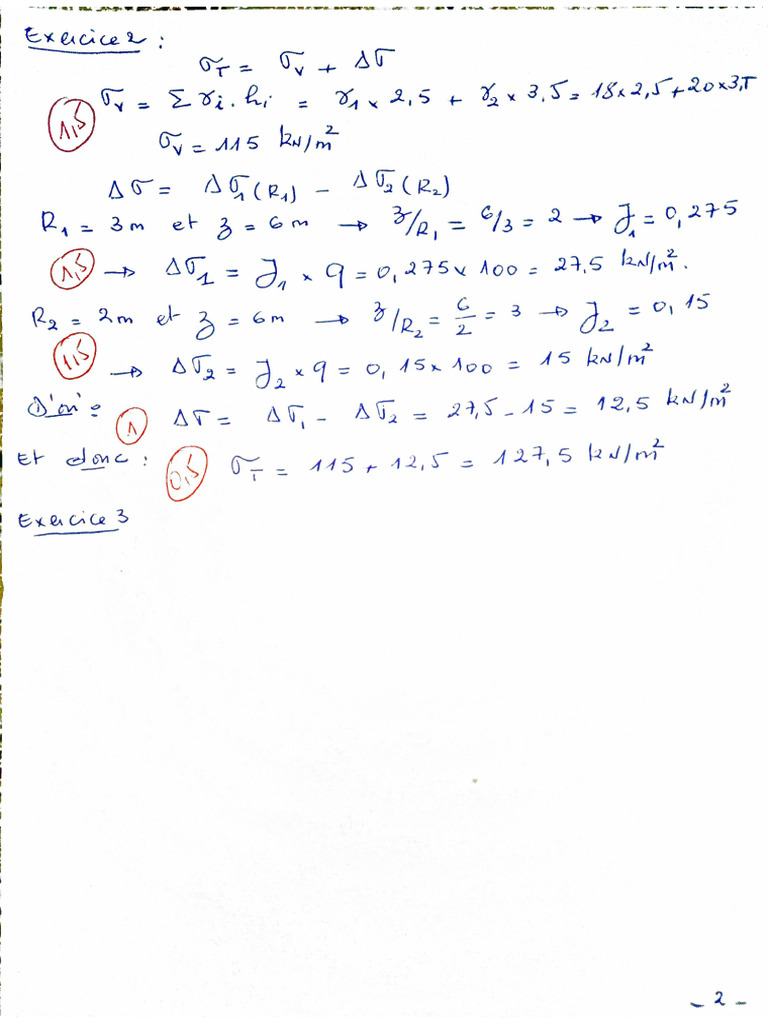 Exercice 2 :
σT = σv + Δσ
1,5 σv = Σ γi . hi = γ1 × 2,5 + γ2 × 3,5 = 18 × 2,5 + 20 × 3,5
σv = 115 kN/m²
Δσ = Δσ1 (R1) – Δσ2 (R2)
R1 = 3m et z = 6m → z/R1 = 6/3 = 2 → J1 = 0,275
1,5 → Δσ1 = J1 × q = 0,275 × 100 = 27,5 kN/m².
R2 = 2m et z = 6m → z/R2 = 6/2 = 3 → J2 = 0,15
1,5 → Δσ2 = J2 × q = 0,15 × 100 = 15 kN/m²
D'où : 1 Δσ = Δσ1 – Δσ2 = 27,5 – 15 = 12,5 kN/m²
Et donc : 0,5 σT = 115 + 12,5 = 127,5 kN/m²
Exercice 3
– 2 –